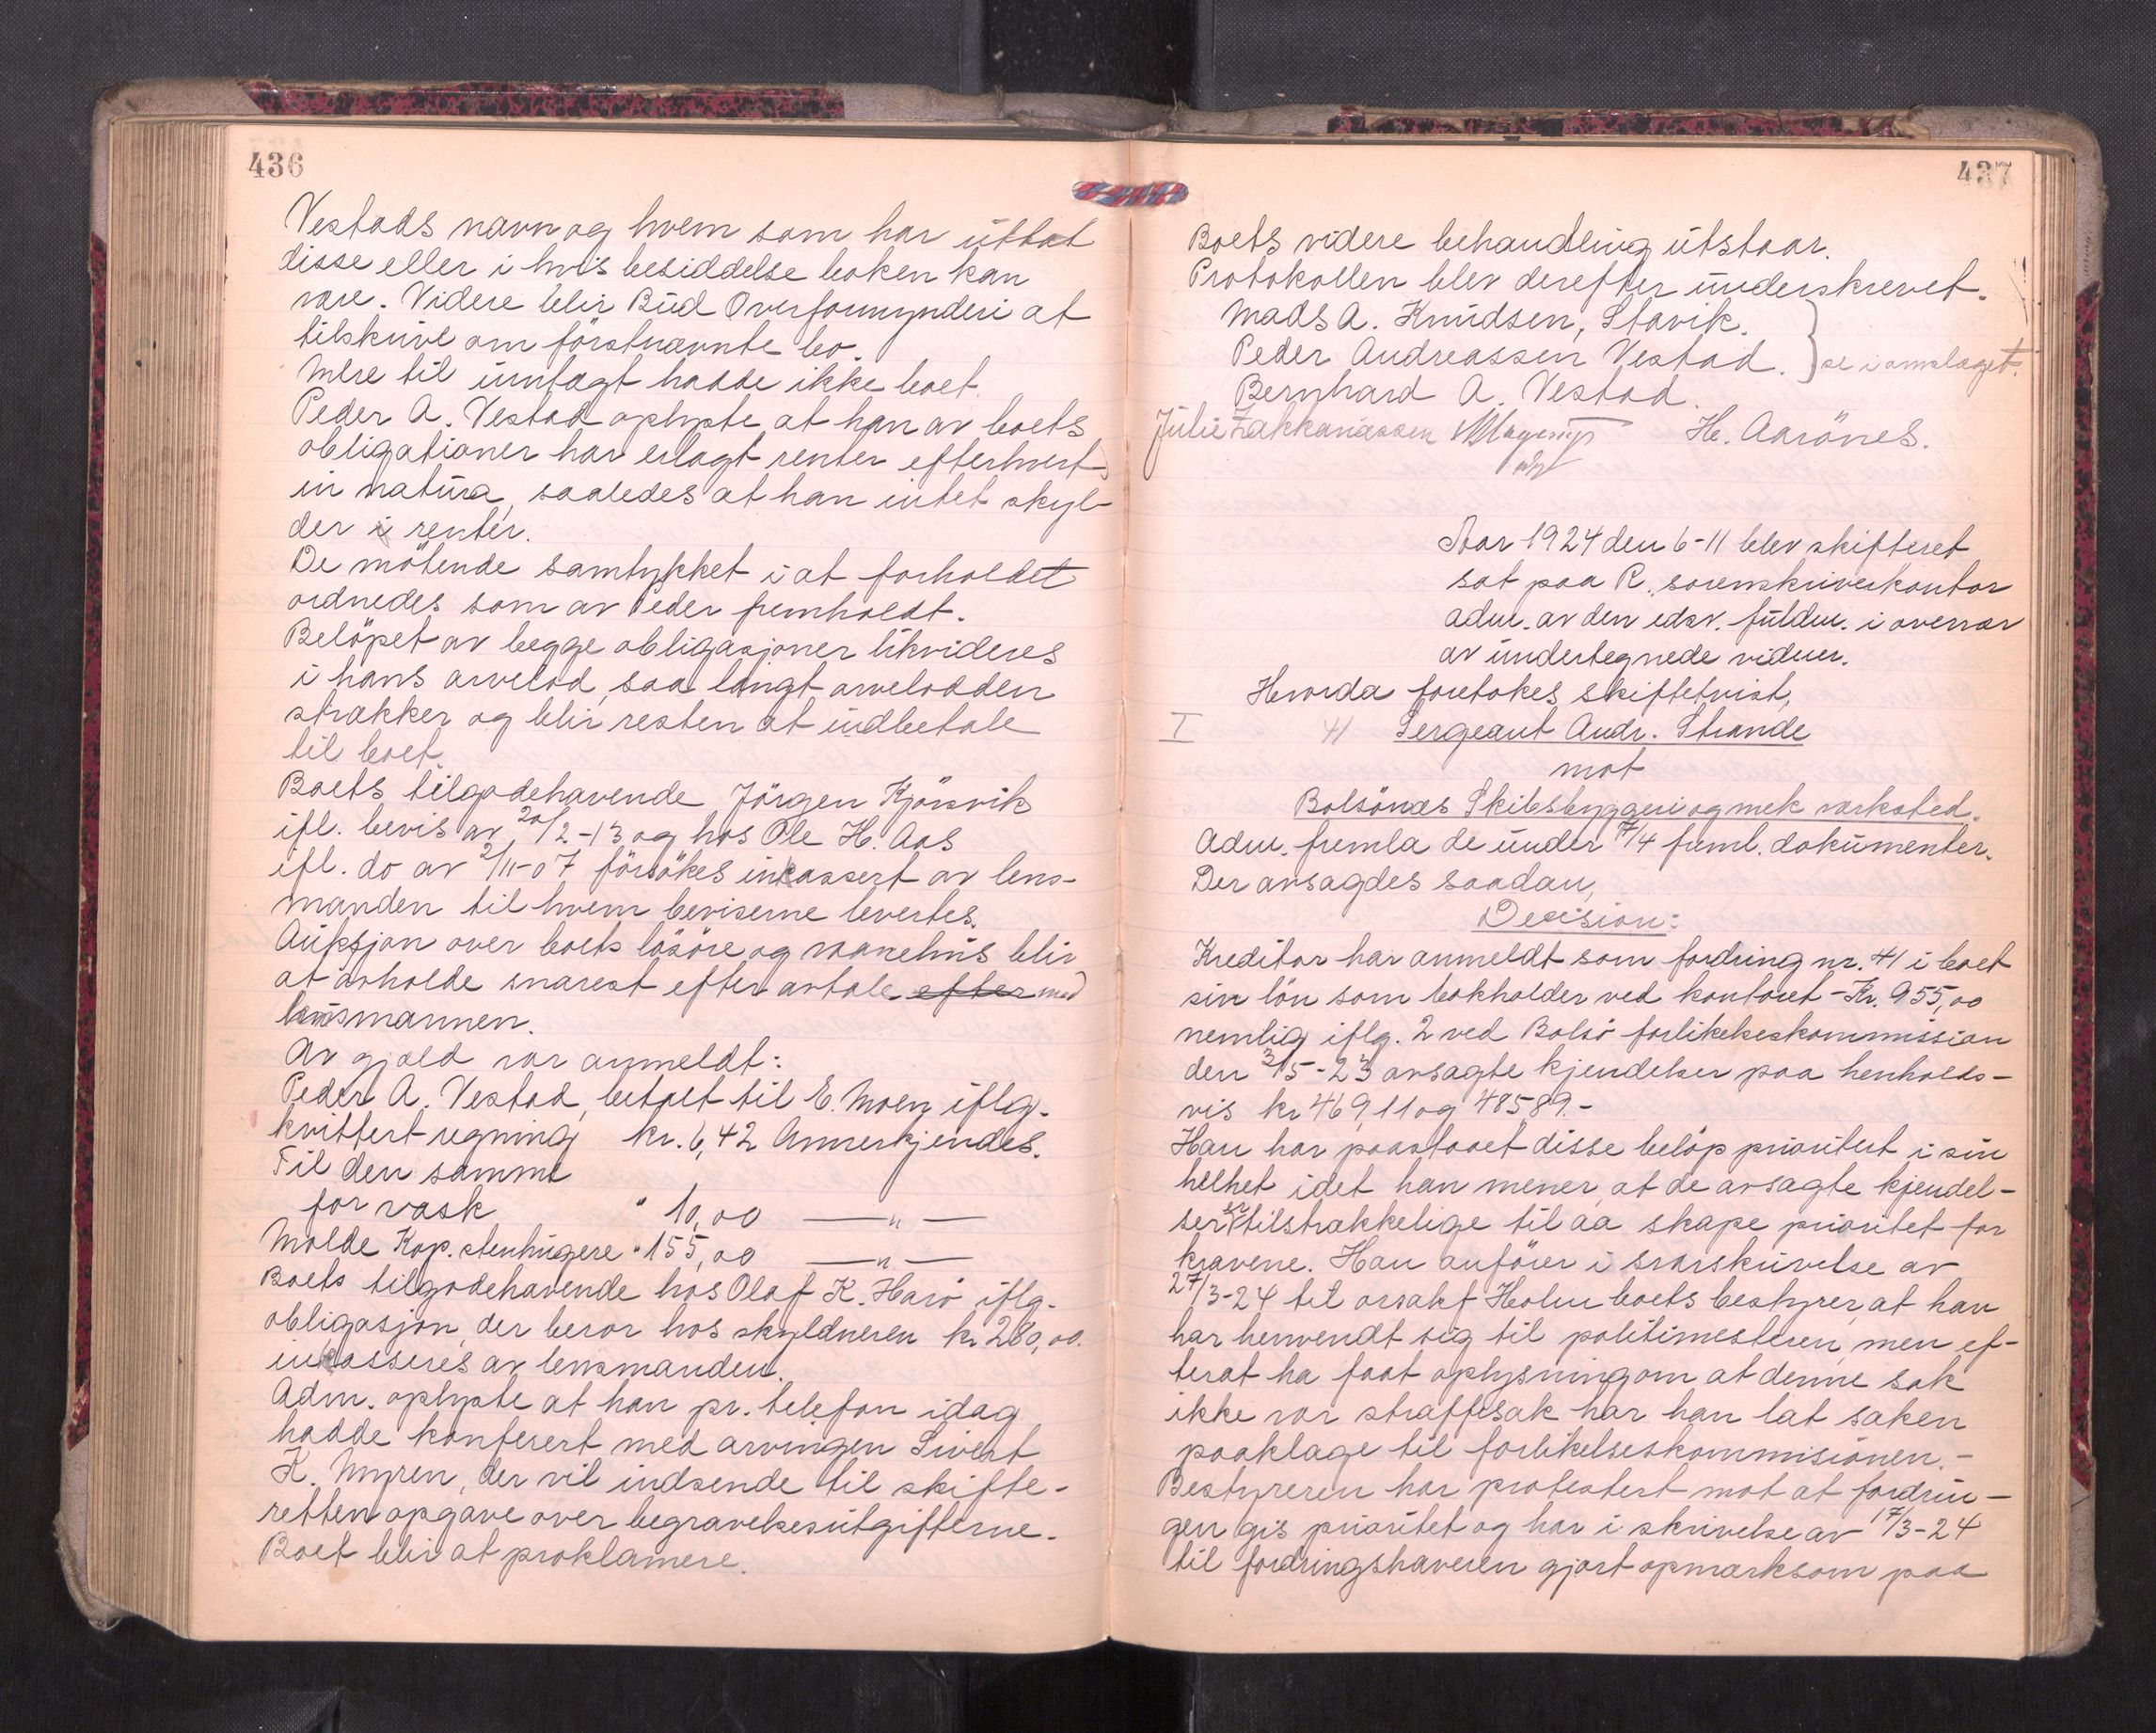 436
Vestads navn og hvem som har uttat
disse eller i hvis besiddelse boken kan
være. Videre blir Bud Overformynderi at
tilskrive om förstnævnte bo.
Mere til inntægt hadde ikke boet.
Peder A. Vestad oplyste at han av boets
obligationer har erlagt renter efterhvert
in natura, saaledes at han intet skyl-
der i renter.
De mötende samtykket i at forholdet
ordnedes som av Peder fremholdt.
Belöpet av begge obligasjoner likvideres
i hans arvelod, saa langt arvelodden
strækker og blir resten at indbetale
til boet.
Boets tilgodehavende Jörgen Kjörsvik
ifl. bevis av 20/2-13 og hos Ole H. Aas
ifl. do av 2/11-07 försökes inkassert av lens-
manden til hvem beviserne levertes.
Auksjon over boets lösöre og vaanehus blir
at avholde snarest efter avtale efter med
lensmannen.
Av gjæld var anmeldt:
Peder A. Vestad, betalt til E. Moen iflg.
kvittert regning kr. 6,42 Annerkjendes.
Til den samme
for vask " 10,00 — " —
Molde Kop. stenhugere " 155,00 — " —
Boets tilgodehavende hos Olaf K. Harö iflg.
obligasjon, der beror hos skyldneren kr 280,00.
inkasseres av lensmanden.
Adm. oplyste at han pr. telefon idag
hadde konferert med arvingen Sivert
K. Myren, der vil indsende til skifte-
retten opgave over begravelsesutgifterne.
Boet blir at proklamere.
437
Boets videre behandling utstaar.
Protokollen blev derefter underskrevet.
Mads A. Knudsen, Stavik.
Peder Andreassen Vestad. } se i omslaget.
Bernhard A. Vestad.
Julie Zakkariassen H. Aarönes.
Aar 1924 den 6-11 blev skifteret
sat paa R. sorenskriverkontor
adm. av den edsv. fuldm. i overvær
av undertegnede vidner.
Hvorda foretokes skiftetvist,
I 41 Sergeant Andr. Strande
mot
Bolsönes Skibsbyggeri og mek verksted.
Adm. fremla de under 17/4 freml. dokumenter.
Der avsagdes saadan,
Decision:
Kreditor har anmeldt som fordring nr. 41 i boet
sin lön som bokholder ved kontoret - Kr. 955,00
nemlig iflg. 2 ved Bolsö forlikelseskommission
den 3/5-23 avsagte kjendelser paa henholds-
vis kr 469,11 og 48589.-
Han har paastaaet disse belöp prioritert i sin
helhet idet han mener at de avsagte kjendel-
ser er tilstrækkelige til aa skape prioritet for
kravene. Han anförer i svarskrivelse av
27/3-24 til orsakf Holm boets bestyrer, at han
har henvendt sig til politimesteren, men ef-
terat ha faat oplysning om at denne sak
ikke var straffesak har han lat saken
paaklage til forlikelseskommisionen.-
Bestyreren har protestert mot at fordrin-
gen gis prioritet og har i skrivelse av 17/3-24
til fordringshaveren gjort opmerksom paa